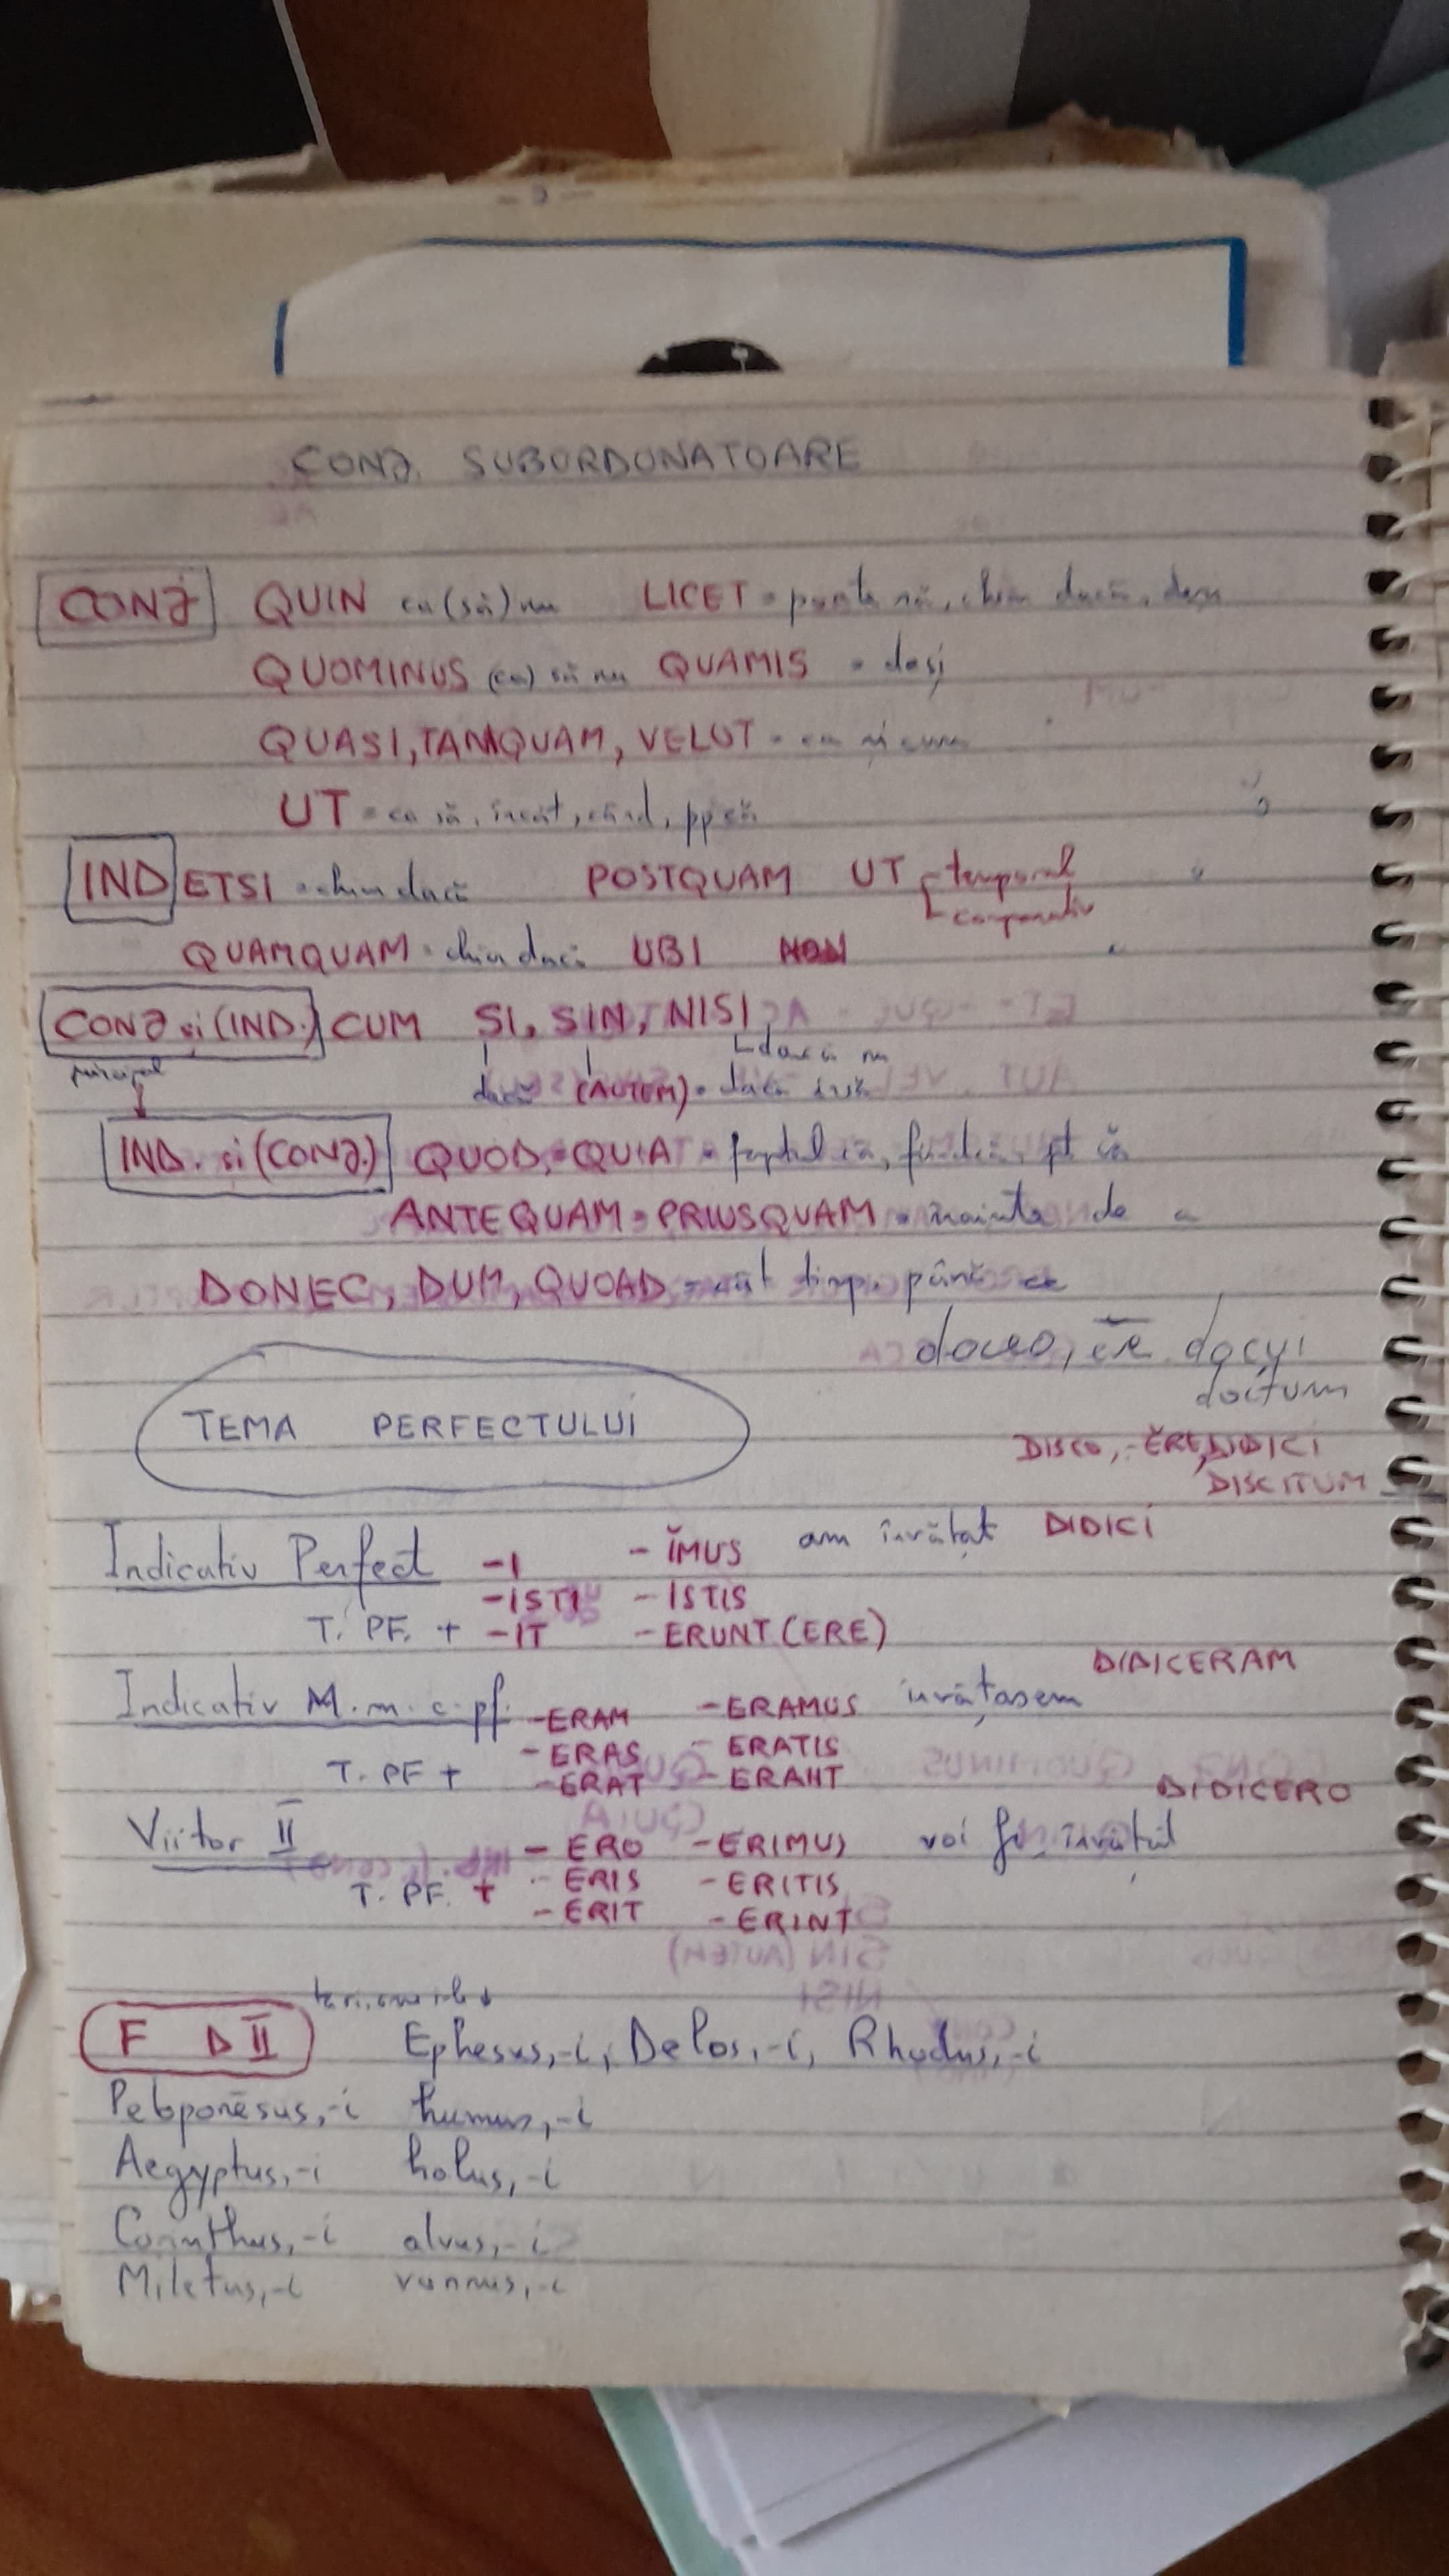 CONJ. SUBORDONATOARE
CONJ QUIN ca (să) nu LICET = poate să, chiar dacă, deși
QUOMINUS (ca) să nu QUAMIS = deși
QUASI, TAMQUAM, VELUT = ca și cum
UT = ca să, încât, când, pp că
IND ETSI = chiar dacă POSTQUAM UT temporal
comparativ
QUAMQUAM = chiar dacă UBI
CONJ și (IND.) CUM SI, SIN, NISI
dacă nu
principal dacă (AUTEM) = dacă însă
IND. și (CONJ.) QUOD, = QUIA = faptul că, fiindcă, pt că
ANTEQUAM = PRIUSQUAM = înainte de a
DONEC, DUM, QUOAD = cât timp, până ce
doceo, ēre, docui
doctum
TEMA PERFECTULUI
DISCO, -ĔRE, DIDICI
DISCITUM
Indicativ Perfect -I -ĬMUS am învățat DIDICI
-ISTI -ISTIS
T. PF. + -IT -ERUNT (ERE)
DIDICERAM
Indicativ M.m.c.pf. -ERAM -ERAMUS învățasem
-ERAS - ERATIS
T. PF + -ERAT - ERANT
DIDICERO
Viitor II - ERO -ERIMUS voi fi învățat
- ERIS -ERITIS
T. PF. + - ERIT -ERINT
F D II Ephesus, -i, Delos, -i, Rhodus, -i
Peloponēsus, -i humus, -i
Aegyptus, -i holus, -i
Corinthus, -i alvus, -i
Miletus, -i vannus, -i